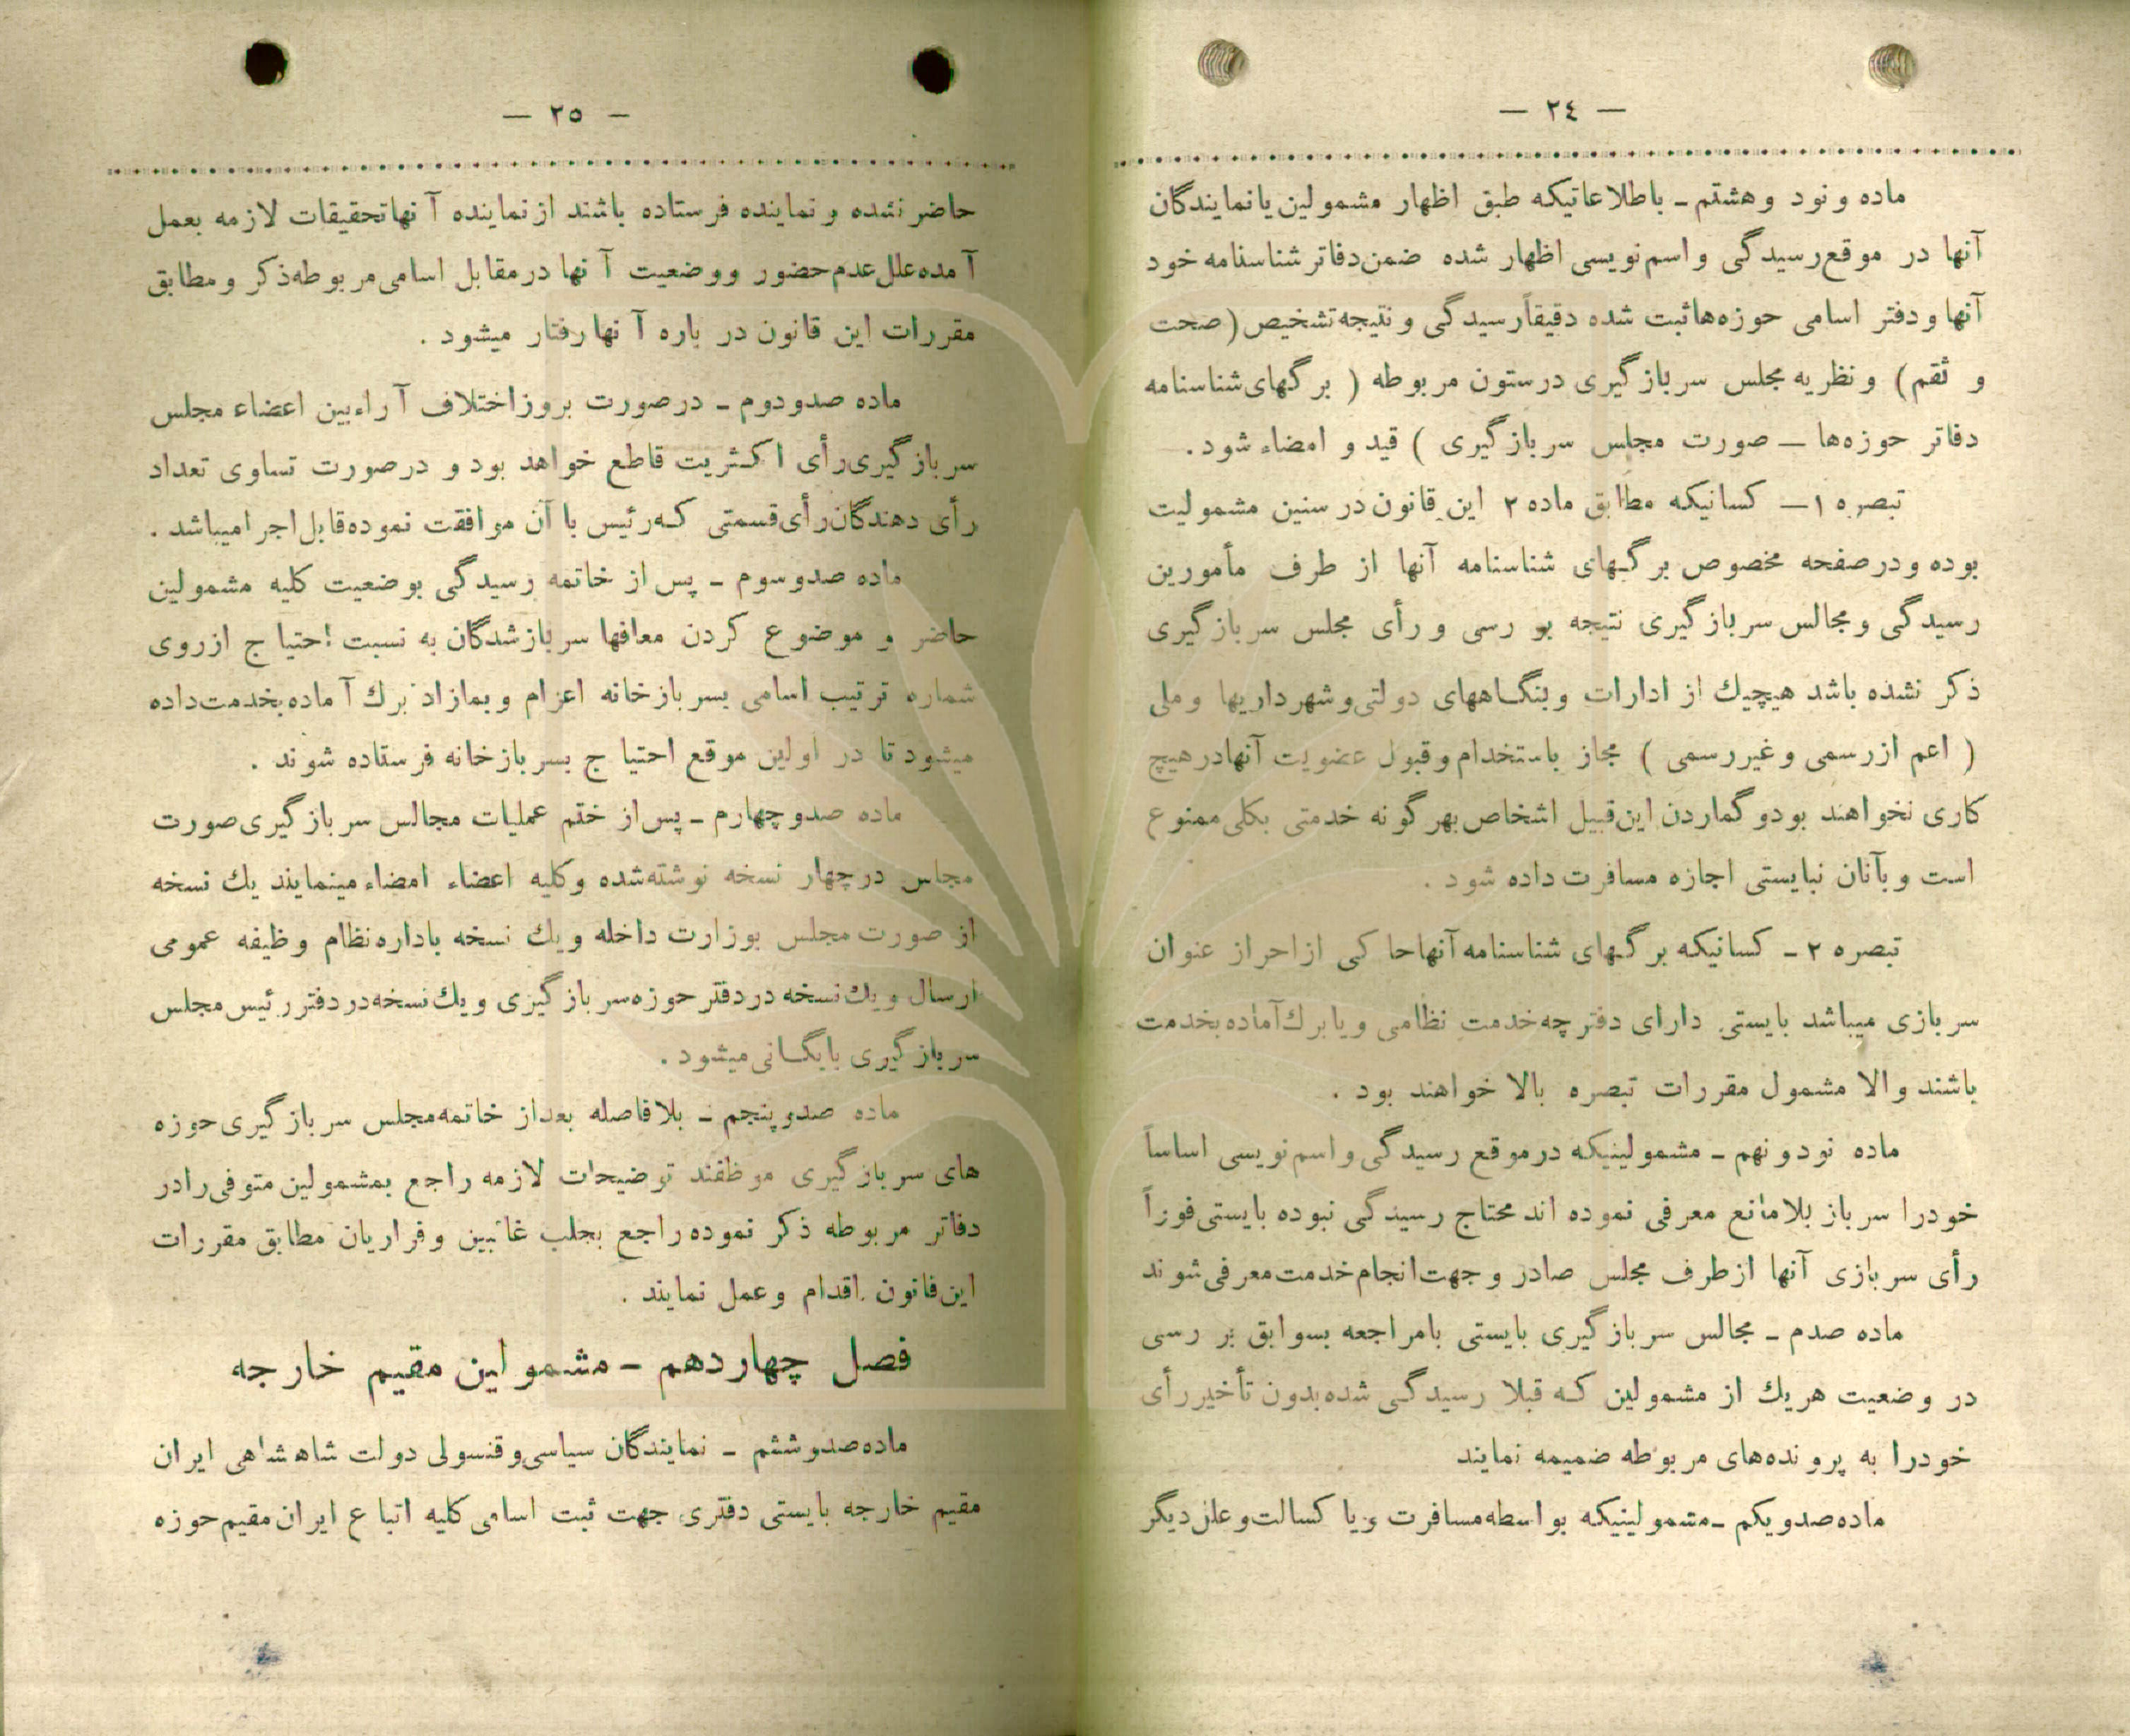 — ٢٤ —
ماده و نود و هشتم ـ باطلاعاتیکه طبق اظهار مشمولین یا نمایندگان
آنها در موقع رسیدگی و اسم نویسی اظهار شده ضمن دفاتر شناسنامه خود
آنها و دفتر اسامی حوزه‌ها ثبت شده دقیقاً رسیدگی و نتیجه تشخیص (صحت
و ثقم) و نظریه مجلس سرباز گیری در ستون مربوطه ( برگهای شناسنامه
دفاتر حوزه‌ها — صورت مجلس سرباز گیری ) قید و امضاء شود .
تبصره ١ — کسانیکه مطابق ماده ٢ این قانون در سنین مشمولیت
بوده و در صفحه مخصوص برگهای شناسنامه آنها از طرف مأمورین
رسیدگی و مجالس سرباز گیری نتیجه بو رسی و رأی مجلس سرباز گیری
ذکر نشده باشد هیچیك از ادارات و بنگاههای دولتی و شهرداریها و ملی
( اعم از رسمی و غیر رسمی ) مجاز باستخدام و قبول عضویت آنها در هیچ
کاری نخواهند بود و گماردن این قبیل اشخاص بهر گونه خدمتی بکلی ممنوع
است و بآنان نبایستی اجازه مسافرت داده شود .
تبصره ٢ ـ کسانیکه برگهای شناسنامه آنها حاکی از احراز عنوان
سربازی میباشد بایستی دارای دفترچه خدمت نظامی و یا برك آماده بخدمت
باشند والا مشمول مقررات تبصره بالا خواهند بود .
ماده نود و نهم ـ مشمولینیکه در موقع رسیدگی و اسم نویسی اساساً
خود را سرباز بلامانع معرفی نموده اند محتاج رسیدگی نبوده بایستی فوراً
رأی سربازی آنها از طرف مجلس صادر و جهت انجام خدمت معرفی شوند
ماده صدم ـ مجالس سرباز گیری بایستی بامراجعه بسوابق بر رسی
در وضعیت هر یك از مشمولین که قبلا رسیدگی شده بدون تأخیر رأی
خود را به پرونده‌های مربوطه ضمیمه نمایند
ماده صد و یکم ـ مشمولینیکه بواسطه مسافرت و یا کسالت و علل دیگر
— ٢٥ —
حاضر نشده و نماینده فرستاده باشند از نماینده آنها تحقیقات لازمه بعمل
آمده علل عدم حضور و وضعیت آنها در مقابل اسامی مربوطه ذکر و مطابق
مقررات این قانون در باره آنها رفتار میشود .
ماده صد و دوم ـ در صورت بروز اختلاف آراء بین اعضاء مجلس
سرباز گیری رأی اکثریت قاطع خواهد بود و در صورت تساوی تعداد
رأی دهندگان رأی قسمتی که رئیس با آن موافقت نموده قابل اجرا میباشد .
ماده صد و سوم ـ پس از خاتمه رسیدگی بوضعیت کلیه مشمولین
حاضر و موضوع کردن معافها سرباز شدگان به نسبت احتیاج از روی
شماره ترتیب اسامی بسرباز خانه اعزام و بمازاد برك آماده بخدمت داده
میشود تا در اولین موقع احتیاج بسرباز خانه فرستاده شوند .
ماده صد و چهارم ـ پس از ختم عملیات مجالس سرباز گیری صورت
مجلس در چهار نسخه نوشته شده و کلیه اعضاء امضاء مینمایند یك نسخه
از صورت مجلس بوزارت داخله و یك نسخه باداره نظام وظیفه عمومی
ارسال و یك نسخه در دفتر حوزه سرباز گیری و یك نسخه در دفتر رئیس مجلس
سرباز گیری بایگانی میشود .
ماده صد و پنجم ـ بلافاصله بعد از خاتمه مجلس سرباز گیری حوزه
های سرباز گیری موظفند توضیحات لازمه راجع بمشمولین متوفی را در
دفاتر مربوطه ذکر نموده راجع بجلب غائبین و فراریان مطابق مقررات
این قانون اقدام و عمل نمایند .
فصل چهاردهم ـ مشمولین مقیم خارجه
ماده صد و ششم ـ نمایندگان سیاسی و قنسولی دولت شاهنشاهی ایران
مقیم خارجه بایستی دفتری جهت ثبت اسامی کلیه اتباع ایران مقیم حوزه